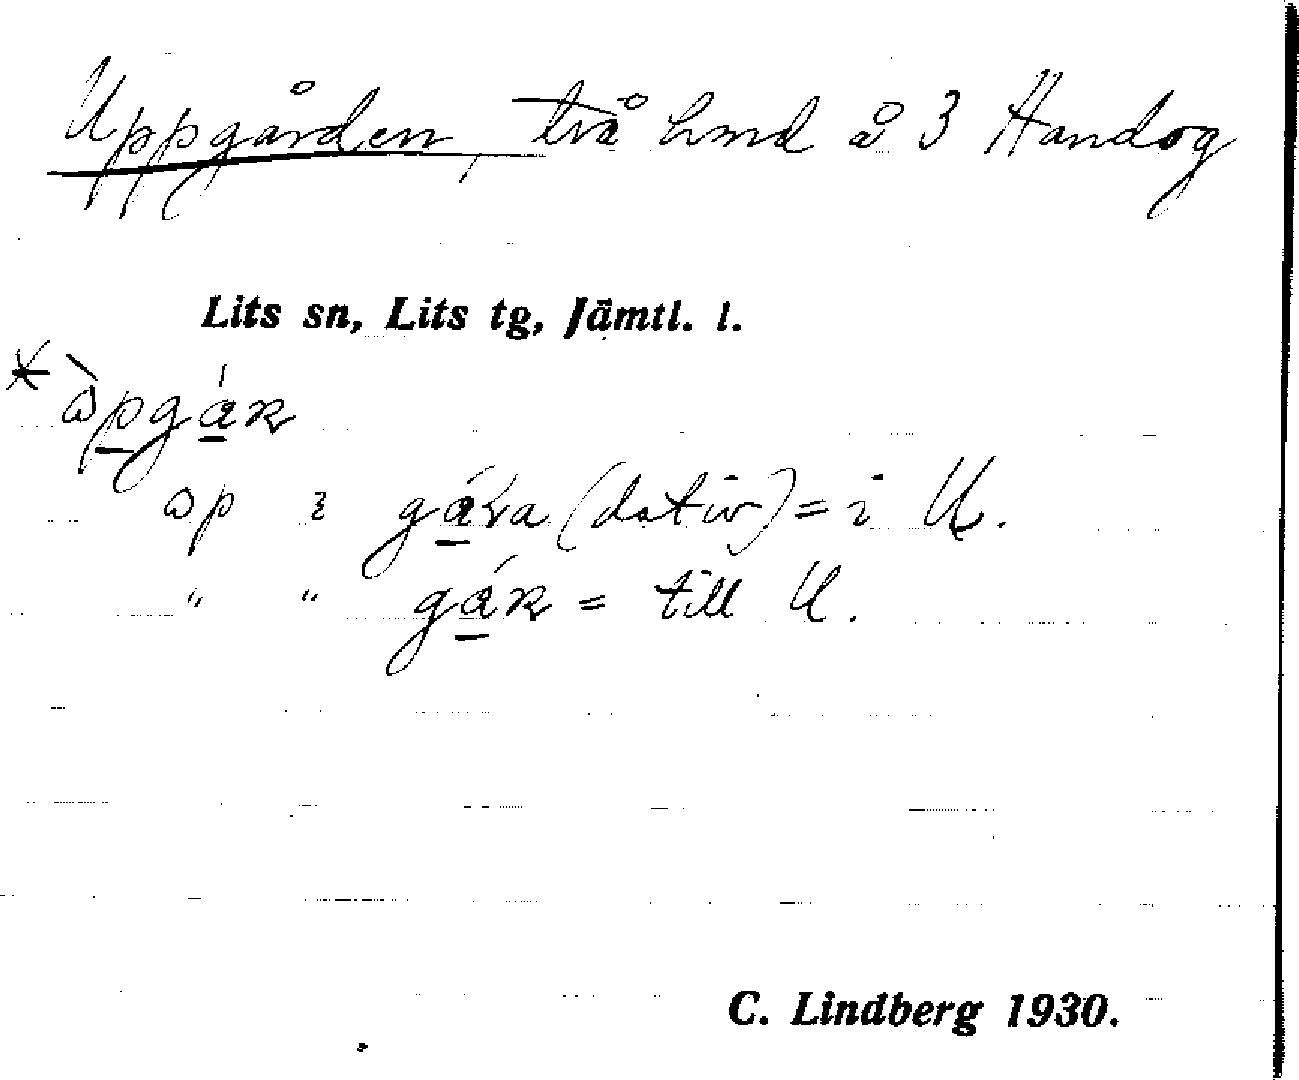 Uppgården, två hmd å 3 Handog
Lits sn, Lits tg, Jämtl. l.
gára (dativ) = i U.
" " = till U.
C. Lindberg 1930.